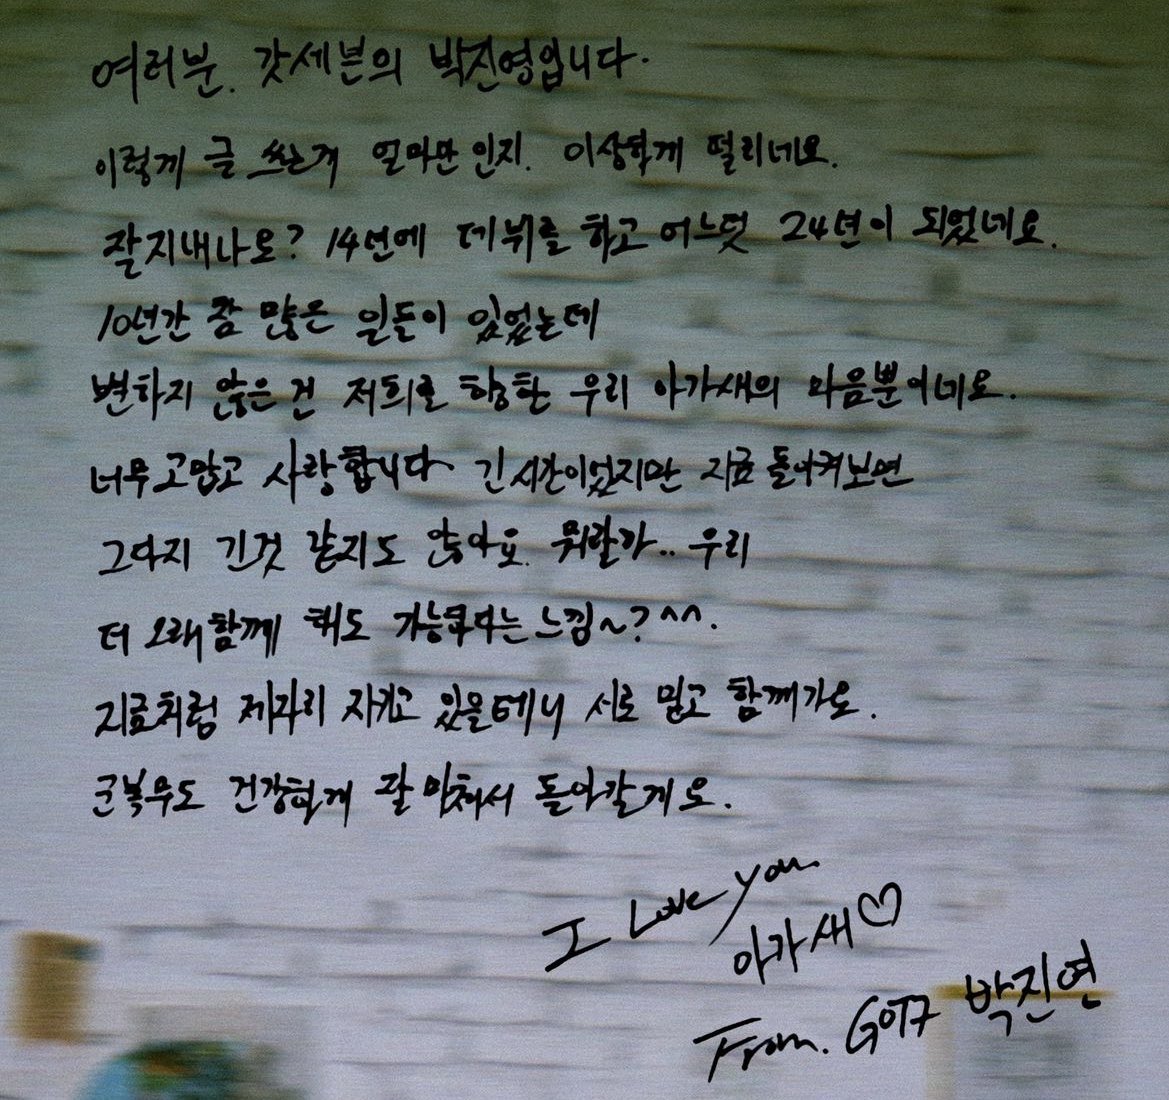 여러분. 갓세븐의 박진영입니다.
이렇게 글 쓰는게 얼마만 인지. 이상하게 떨리네요.
잘지내나요? 14년에 데뷔를 하고 어느덧 24년이 되었네요.
10년간 참 많은 일들이 있었는데
변하지 않은 건 저희를 향한 우리 아가새의 마음뿐이네요.
너무 고맙고 사랑합니다 긴 시간이었지만 지금 돌아켜보면
그다지 긴것 같지도 않아요. 뭐랄까.. 우리
더 오래 함께 해도 가능하다는 느낌~? ^^.
지금처럼 제자리 지키고 있을테니 서로 믿고 함께가요.
군복무도 건강하게 잘 마쳐서 돌아갈게요.
I Love you
아가새♡
From. GOT7 박진영